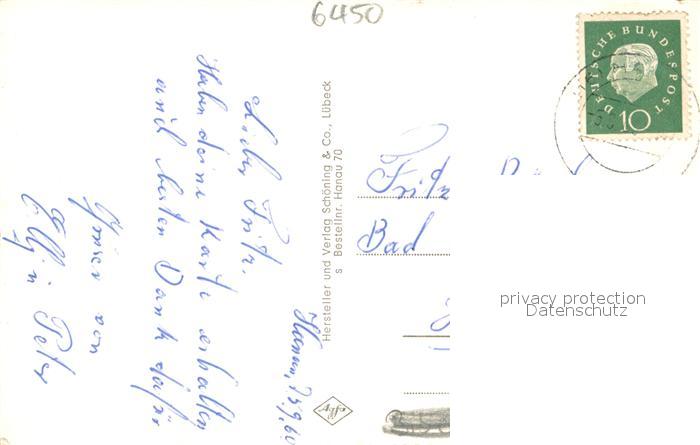 6450
Lieber Fritz.
Haben deine Karte erhalten
und besten Dank dafür
Grüsse von
Elly u Peter
Hanau, 7.9.60
Hersteller und Verlag Schöning & Co., Lübeck
s Bestellnr. Hanau 70
Agfa
DEUTSCHE BUNDESPOST
10
Fritz
Bad
privacy protection
Datenschutz